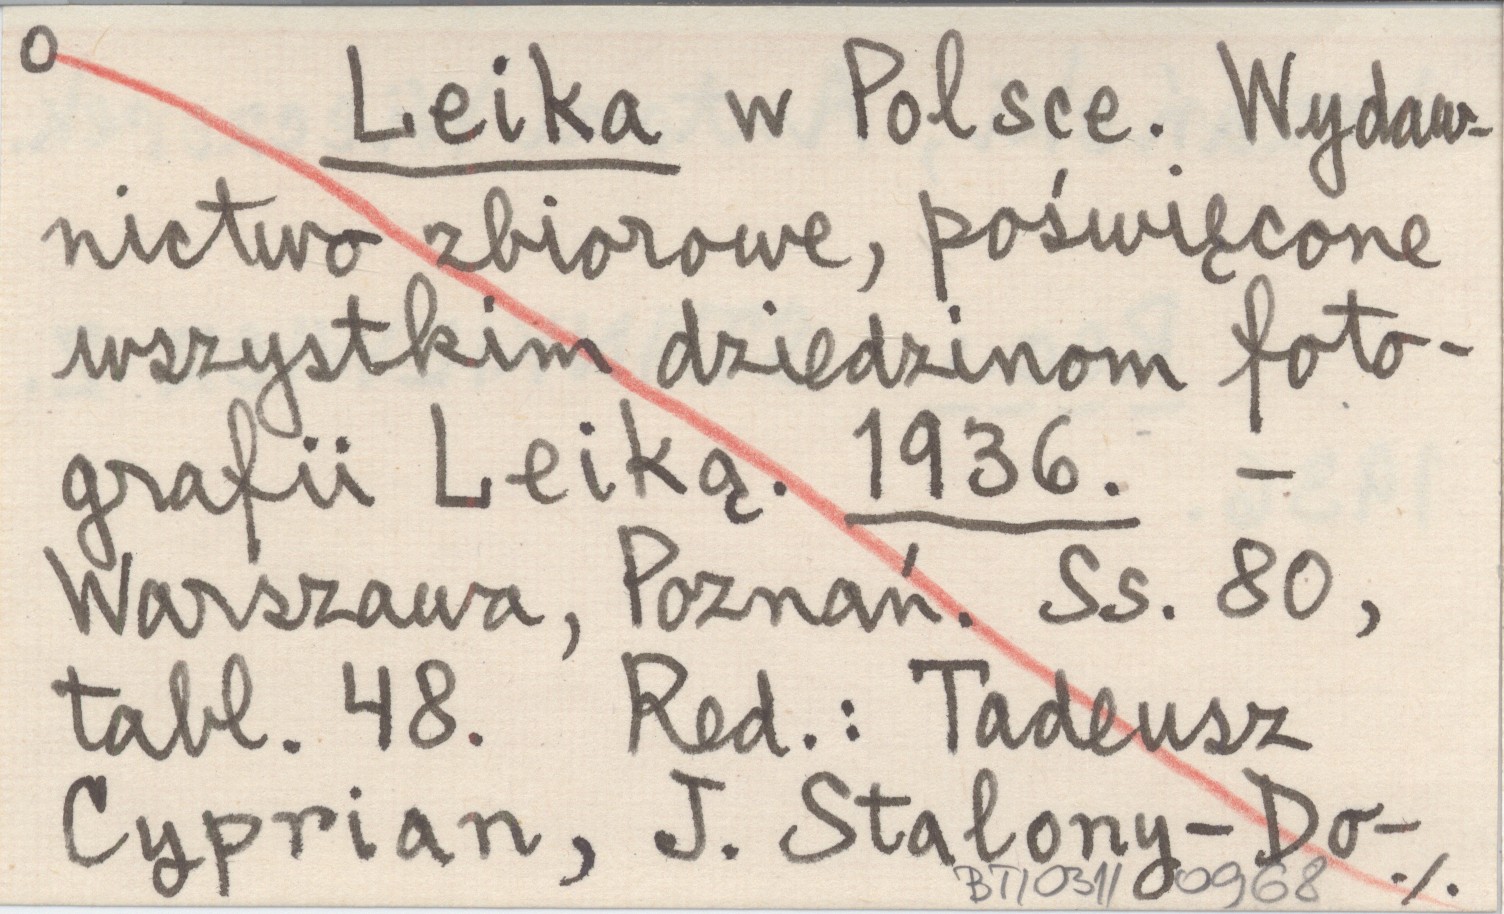 o Leika w Polsce. Wydaw-
nictwo zbiorowe, poświęcone
wszystkim dziedzinom foto-
grafii Leiką. 1936. —
Warszawa, Poznań. Ss. 80,
tabl. 48. Red.: Tadeusz
Cyprian, J. Stalony-Do-
BT/031/ 0968 ./.